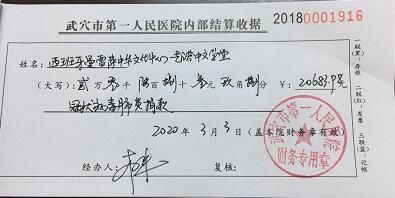 武穴市第一人民医院内部结算收据
20180001916
姓名: 西班牙曼雷萨中华文化中心 老港中文学堂
(大写) 贰万零千陆百捌十叁元玖角捌分 ¥: 20683.98元
冠状病毒肺炎捐款
2020年3月3日(盖本院财务章有效)
经办人: 复核:
武穴市第一人民医院
财务专用章
一联(黑):存根 二联(红):发票 三联(蓝):记帐